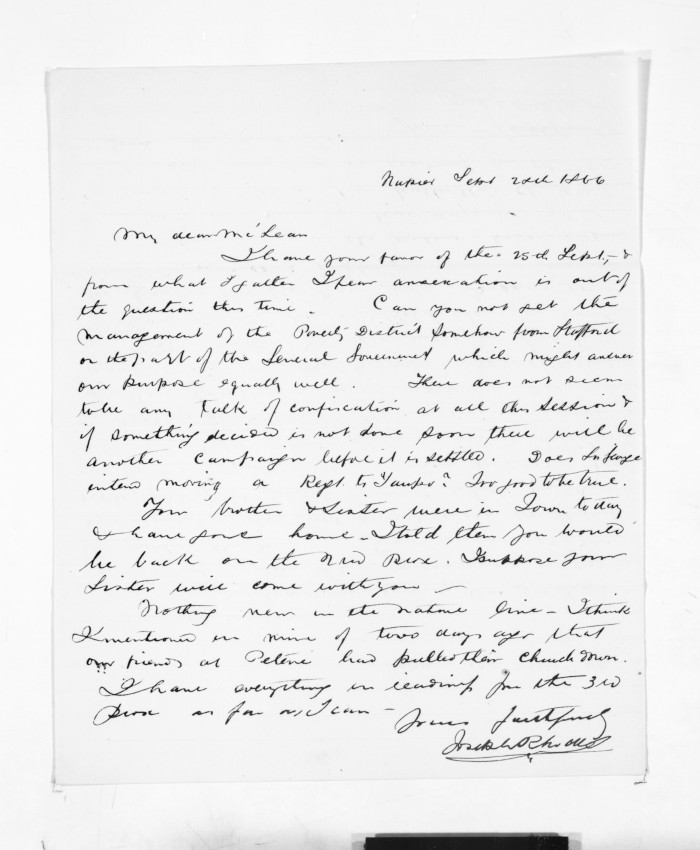 Napier Sept 28th 1866
My dear McLean
I have your favor of the 25th Sept, &
from what I gather I fear annexation is out of
the question this time. Can you not get the
management of the Poverty District somehow from Stafford
on the part of the General Government which might answer
our purpose equally well. There does not seem
to be any talk of confiscation at all this session &
if something decided is not done soon there will be
another campaign before it is settled. Does Sir George
intend moving a Regt to Taupo? Too good to be true.
Your brother & Sister were in Town to day
& have gone home - I told them you would
be back on the 3rd Prox. I suppose your
Sister will come with you -
Nothing new in the native line - I think
I mentioned in mine of two days ago that
our friends at Petane had pulled their church down.
I have everything in readiness for the 3rd
Prox as far as I can -
Yours faithfully
Joseph Rhodes